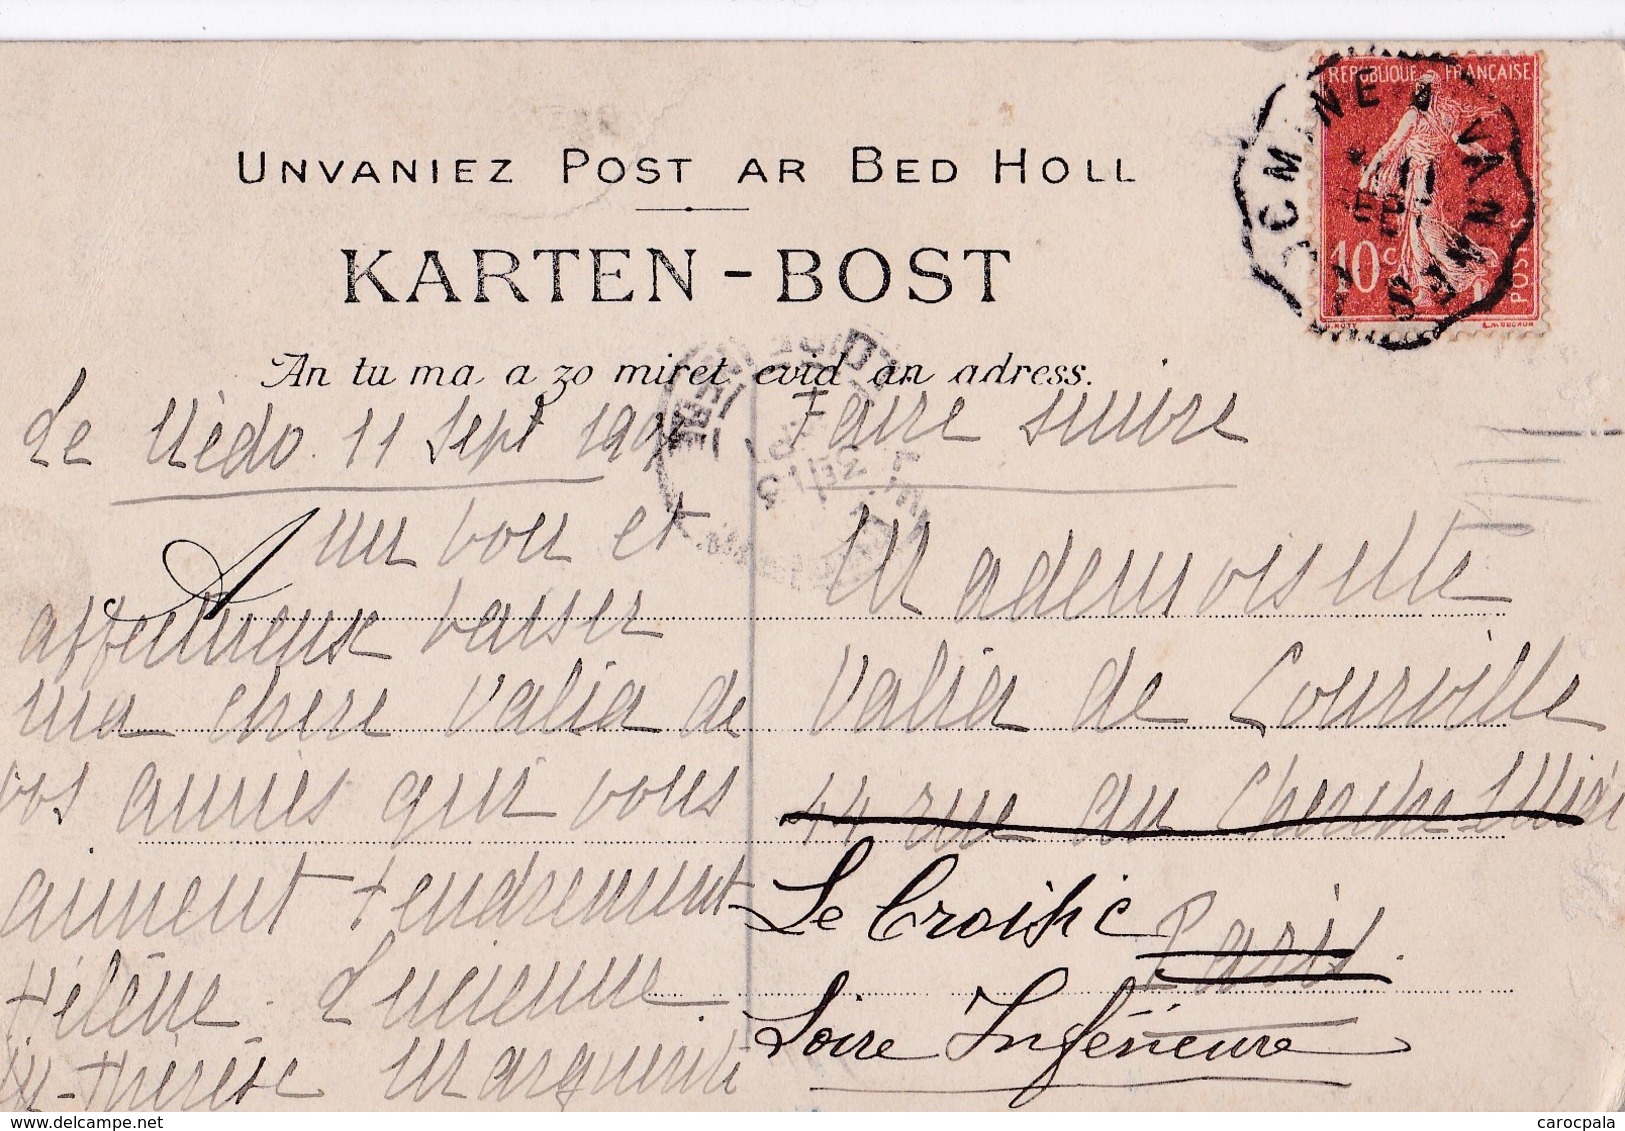 UNVANIEZ POST AR BED HOLL
KARTEN-BOST
An tu ma a zo miret evid an adress.
REPUBLIQUE FRANÇAISE
10 c
POSTES
VANNES
Le 11 Sept
Faire suivre
Un bon et
affectueux baiser
ma chère Valia de
vos amies qui vous
aiment tendrement
Hélène. Lucienne.
M-Thérèse Marguerite
Mademoiselle
Valia de Courville
44 rue du Cherche Midi
Paris.
Le Croisic
Loire Inférieure
carocpala